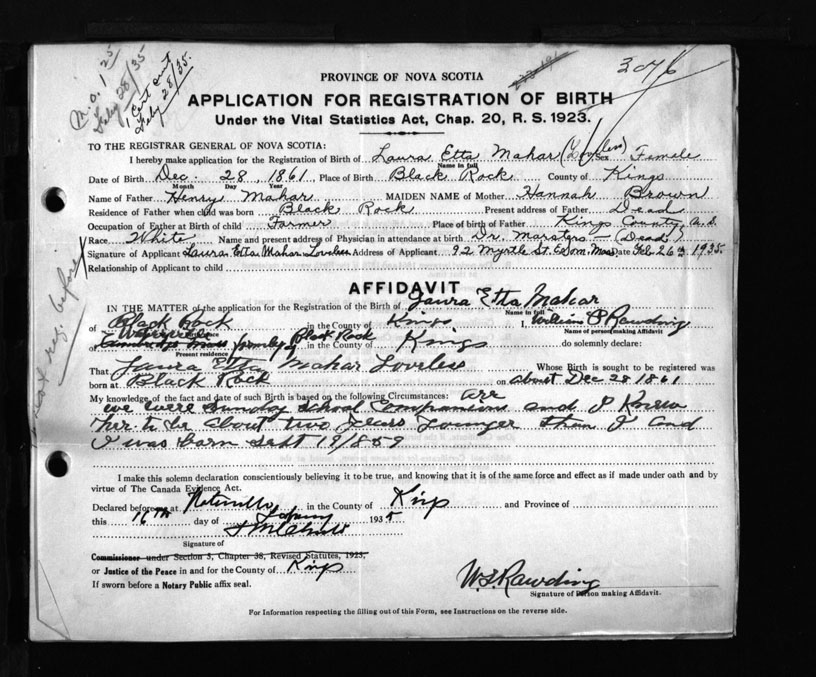 Feby 28/35
1 Cert out
Feby 28/35.
3076
PROVINCE OF NOVA SCOTIA
APPLICATION FOR REGISTRATION OF BIRTH
Under the Vital Statistics Act, Chap. 20, R. S. 1923.
TO THE REGISTRAR GENERAL OF NOVA SCOTIA:
I hereby make application for the Registration of Birth of Laura Etta Mahar (Loveless) Sex Female
Name in full
Date of Birth Dec. 28, 1861, Place of Birth Black Rock County of Kings
Month Day Year
Name of Father Henry Mahar MAIDEN NAME of Mother Hannah Brown
Residence of Father when child was born Black Rock Present address of Father Dead
Occupation of Father at Birth of child Farmer Place of birth of Father Kings County, N.S.
Race White Name and present address of Physician in attendance at birth Dr. Marsters — (Dead)
Signature of Applicant Laura Etta Mahar Loveless Address of Applicant 92 Myrtle St. Mass Date Feb. 26th 1935.
Relationship of Applicant to child
not reg. before
AFFIDAVIT
IN THE MATTER of the application for the Registration of the Birth of Laura Etta Mahar
Name in full
of Black Rock in the County of Kings I, William P Rawding
Name of person making Affidavit
of Waterville formerly of Black Rock in the County of Kings do solemnly declare:
Present residence
That Laura Etta Mahar Loveless Whose Birth is sought to be registered was
born at Black Rock on about Dec 28 1861
My knowledge of the fact and date of such Birth is based on the following Circumstances: are
we were Sunday School Companions and I Knew
her to be about two years younger than I and
I was born Sept 19/1859
I make this solemn declaration conscientiously believing it to be true, and knowing that it is of the same force and effect as if made under oath and by
virtue of The Canada Evidence Act.
Declared before me at Waterville in the County of Kings and Province of
this 16th day of 1935
Signature of
Commissioner under Section 3, Chapter 38, Revised Statutes, 1923,
or Justice of the Peace in and for the County of Kings
If sworn before a Notary Public affix seal.
Rawding
Signature of Person making Affidavit.
For Information respecting the filling out of this Form, see Instructions on the reverse side.